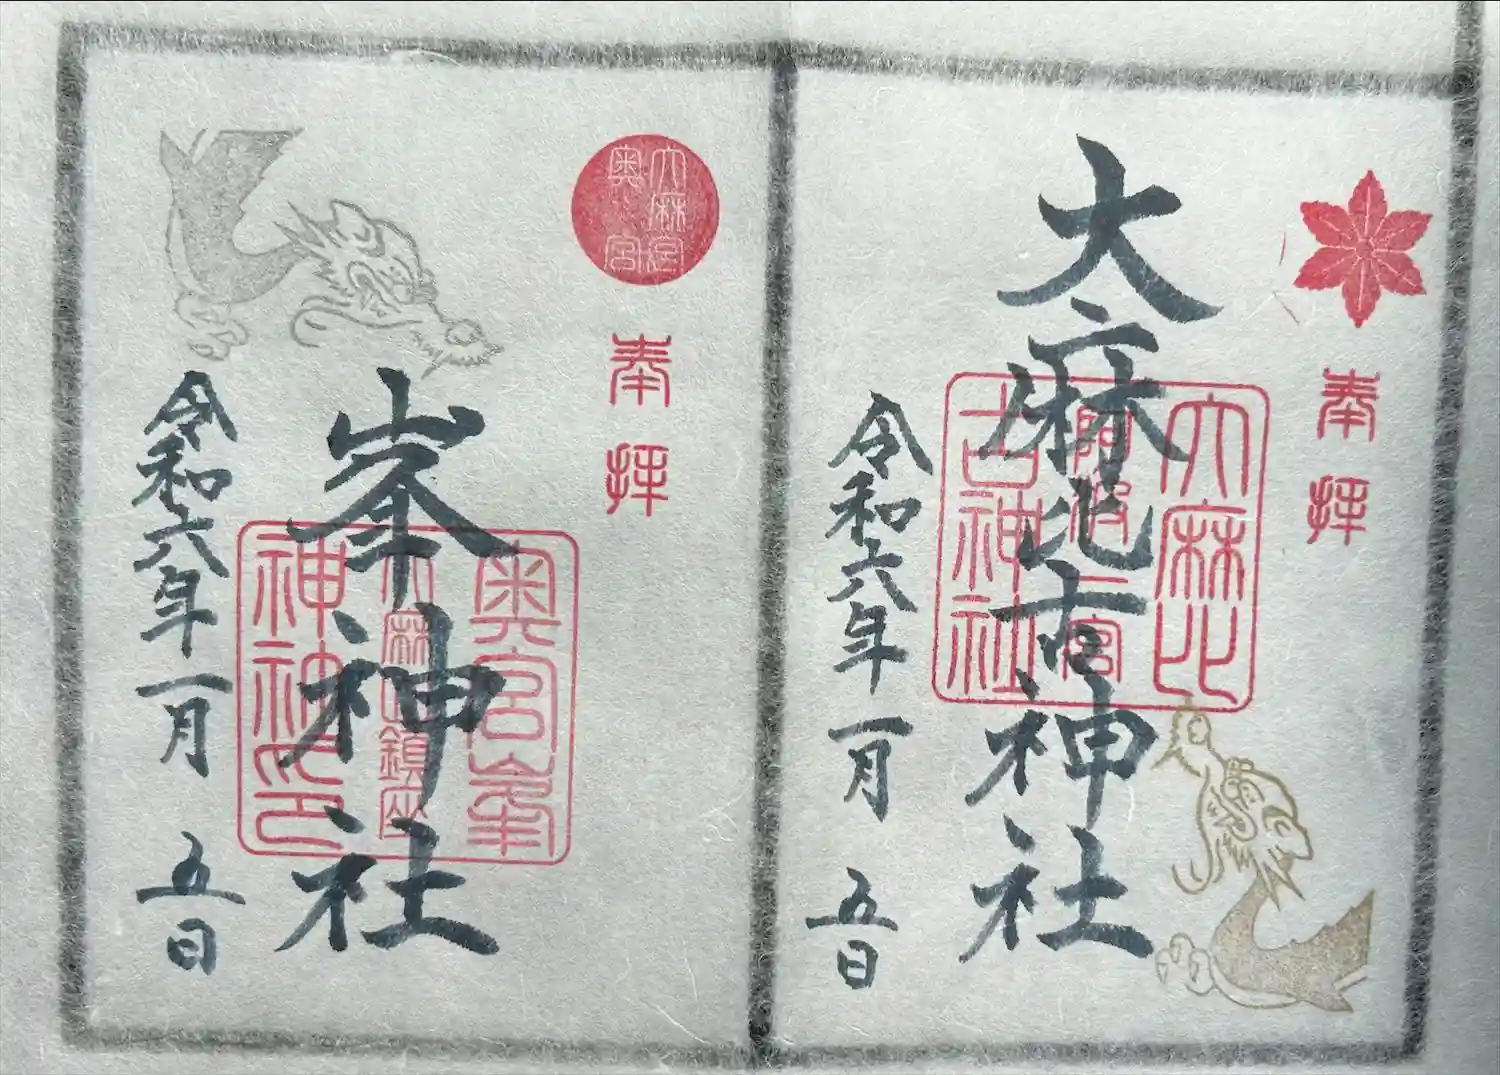 奉拝
大麻比古神社
大麻比
阿波一宮
古神社
令和六年一月五日
大麻山
奥宮
奉拝
峯神社
奥宮山峯
大麻山鎮座
神社之印
令和六年一月五日